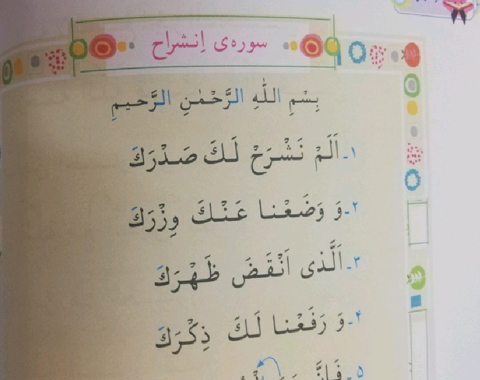 سوره‌ی اِنشراح
بِسْمِ اللّٰهِ الرَّحْمٰنِ الرَّحیمِ
۱- اَلَمْ نَشْرَحْ لَکَ صَدْرَکَ
۲- وَ وَضَعْنا عَنْکَ وِزْرَکَ
۳- اَلَّذی اَنْقَضَ ظَهْرَکَ
۴- وَ رَفَعْنا لَکَ ذِکْرَکَ
۵-